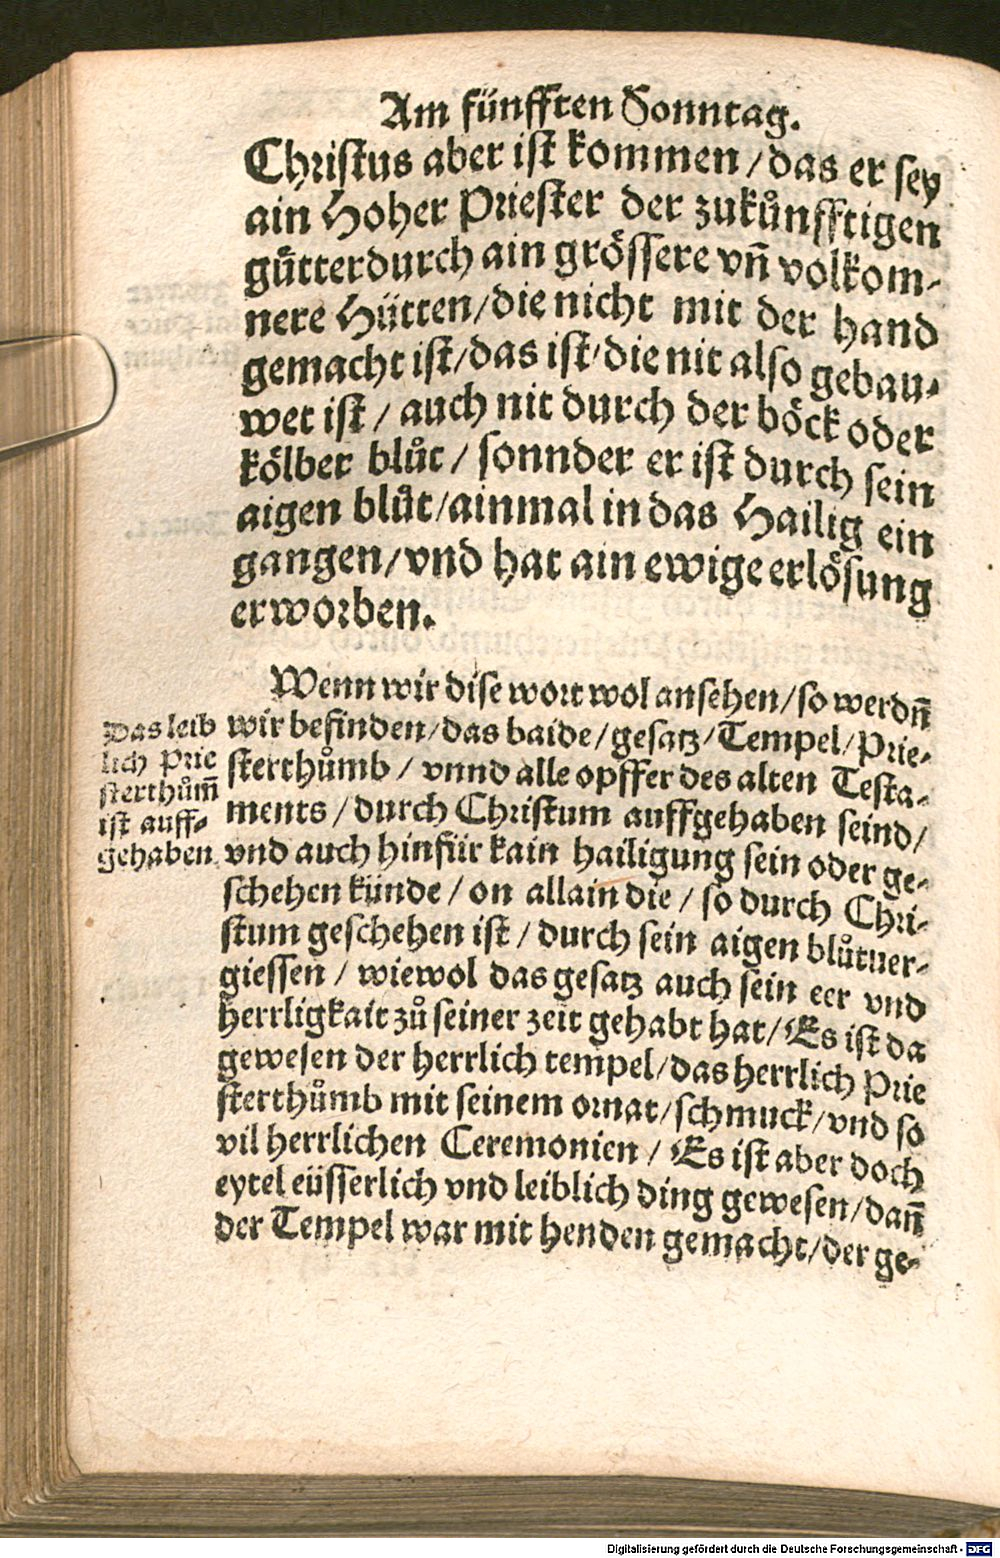 Am fünfften Sonntag.
Christus aber ist kommen / das er sey
ain Hoher Priester der zukůnfftigen
gütterdurch ain grössere vñ volkom-
nere Hütten / die nicht mit der hand
gemacht ist / das ist / die nit also gebau-
wet ist / auch nit durch der böck oder
kölber blůt / sonnder er ist durch sein
aigen blůt / ainmal in das Hailig ein
gangen / vnd hat ain ewige erlösung
erworben.
Wenn wir dise wort wol ansehen / so werdñ
wir befinden / das baide / gesatz / Tempel / Prie-
sterthůmb / vnnd alle opffer des alten Testa-
ments / durch Christum auffgehaben seind /
vnd auch hinfür kain hailigung sein oder ge-
schehen künde / on allain die / so durch Chri-
stum geschehen ist / durch sein aigen blůtuer-
giessen / wiewol das gesatz auch sein eer vnd
herrligkait zů seiner zeit gehabt hat / Es ist da
gewesen der herrlich tempel / das herrlich Prie
sterthůmb mit seinem ornat / schmuck / vnd so
vil herrlichen Ceremonien / Es ist aber doch
eytel eüsserlich vnd leiblich ding gewesen / dañ
der Tempel war mit henden gemacht / der ge-
Das leib
lich Prie
sterthům̃
ist auff-
gehaben
Digitalisierung gefördert durch die Deutsche Forschungsgemeinschaft - DFG